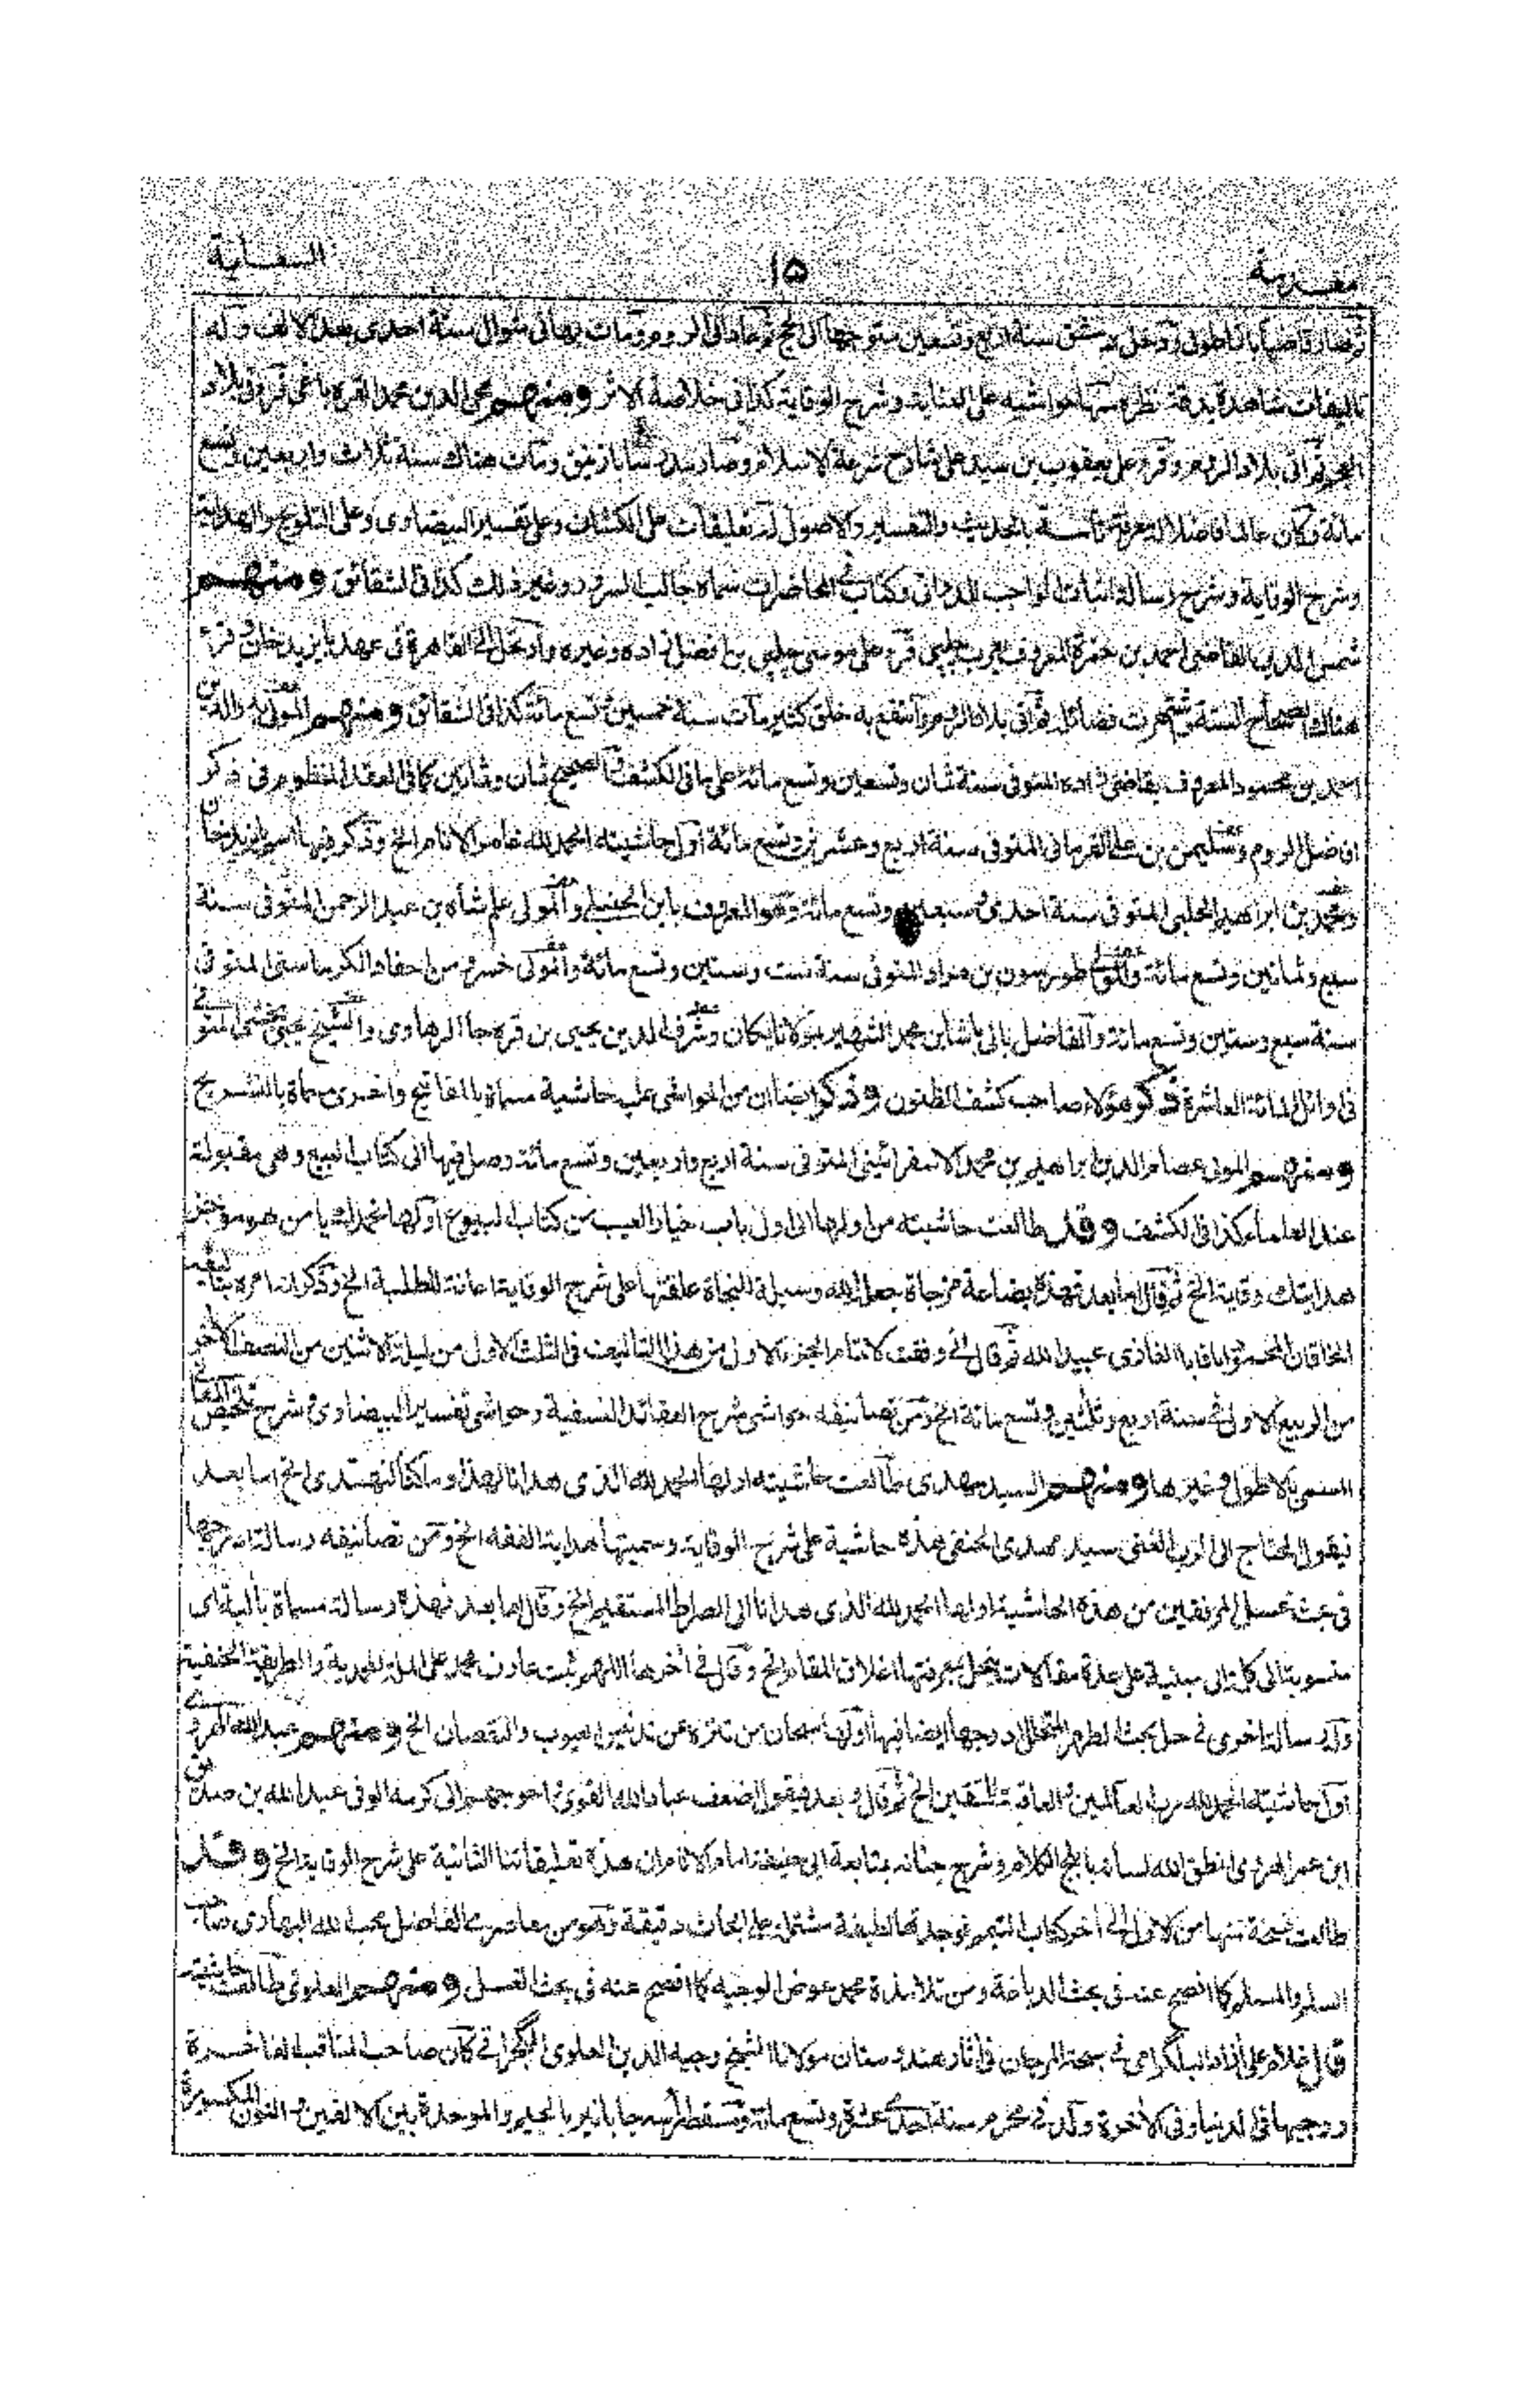 مقدمة ١٥ السعاية
ثم صار قاضيا باناطولى ودخل دمشق سنة اربع وتسعين متوجها الى الحج ثم عاد الى الروم ومات بها فى شوال سنة احدى بعد الالف وله
تاليفات شاهدة بدقة نظره منها حواشيه على العناية وشرح الوقاية كذا فى خلاصة الاثر ومنهم محى الدين محمد القره باغى قرء فى بلاد
العجم ثم اتى بلاد الروم وقرء على يعقوب بن سيد على شارح شرعة الاسلام وصار مدرسا بازنيق ومات هناك سنة ثلاث واربعين وتسع
مائة وكان عالما فاضلا له معرفة تامة بالحديث والتفسير والاصول له تعليقات على الكشاف وعلى تفسير البيضاوى وعلى التلويح والهداية
وشرح الوقاية وشرح رسالة اثبات الواجب للدوانى وكتاب فى المحاضرات سماه جالب السرور وغير ذلك كذا فى الشقائق ومنهم
شمس الدين القاضى احمد بن حمزة المعروف بعرب چلپى قرء على موسى چلپى بن افضل زاده وغيره وارتحل الى القاهرة فى عهد بايزيد خان وقرء
هناك الصحاح الستة واشتهرت فضائله ثم اتى بلاد الروم وانتفع به خلق كثير مات سنة خمسين وتسع مائة كذا فى الشقائق ومنهم المولى بدر الدين
احمد بن محمود المعروف بقاضى زاده المتوفى سنة ثمان وتسعين وتسع مائة على ما فى الكشف والصحيح ثمان وثمانين كما فى العقد المنظوم فى ذكر
افاضل الروم وسليمن بن على القرمانى المتوفى سنة اربع وعشرين وتسع مائة اول حاشيته الحمد لله خالق الانام الخ وذكر فيها اسم بايزيد خان
ومحمد بن ابراهيم الحلبى المتوفى سنة احدى وسبعين وتسع مائة وهو المعروف بابن الحنبلى والمولى علم شاه بن عبد الرحمن المتوفى سنة
سبع وثمانين وتسع مائة والمولى طورسون بن مراد المتوفى سنة ست وستين وتسع مائة والمولى خسرو من احفاد الكرماستى المتوفى
سنة سبع وستين وتسع مائة والفاضل بالى پاشا بن محمد الشهير بمولانا يكان وشرف الدين يحيى بن قره جا الرهاوى والشيخ يحيى بخشى المتوفى
فى اوائل المائة العاشرة ذكر هؤلاء صاحب كشف الظنون وذكر ايضا ان من الحواشى عليه حاشية مسماة بالمفاتيح واخرى مسماة بالتشريح
ومنهم المولى عصام الدين ابراهيم بن محمد الاسفرائينى المتوفى سنة اربع واربعين وتسع مائة وصل فيها الى كتاب البيع وهى مقبولة
عند العلماء كذا فى الكشف وقد طالعت حاشيته من اولها الى اول باب خيار العيب من كتاب البيوع اولها نحمدك يا من هو
هدايتك وقاية الخ ثم قال اما بعد فهذه بضاعة مزجاة جعل الله وسيلة للنجاة علقتها على شرح الوقاية اعانة للطلبة الخ وذكر انه
الخاقان عبيد الله ثم قال وفقت لاتمام الجزء الاول من هذا التاليف فى الثلث الاول من ليلة الاثنين من النصف الآخر
من الربيع الاول فى سنة اربع وثلثين وتسع مائة الخ ومن تصانيفه حواشى شرح العقائد النسفية وحواشى تفسير البيضاوى وشرح تلخيص المعانى
المسمى بالاطول وغيرها ومنهم السيد مهدى طالعت حاشيته اولها الحمد لله الذى هدانا لهذا وما كنا لنهتدى الخ اما بعد
فيقول المحتاج الى الرب الغنى سيد مهدى الحنفى هذه حاشية على شرح الوقاية وسميتها هداية الفقه الخ ومن تصانيفه رسالة درجها
فى بحث غسل المرفقين من هذه الحاشية اولها الحمد لله الذى هدانا الى الصراط المستقيم الخ وقال اما بعد فهذه رسالة مسماة
مبنية على عدة مقالات ينحل بمعرفتها اغلاق المقام الخ وقال فى آخرها اللهم والطريقة الحنفية
وله رسالة اخرى فى حل بحث الطهر المتخلل درجها ايضا فيها اولها سبحان من تنزه عن العيوب والنقصان الخ ومنهم عبد الله الهروى
اول حاشيته الحمد لله رب العالمين والعاقبة للمتقين الخ ثم قال وبعد فيقول اضعف عباد الله القوى واحوجهم الى كرمه الوفى عبد الله بن
ابن عمر الهروى انطق الله لسانه الكلام وشرح جنانه بمتابعة ابى حنيفة امام الانام ان هذه تعليقاتنا الثانية على شرح الوقاية الخ وقد
طالعت نسخة منها من الاول الى آخر كتاب التيمم فوجدتها لطيفة مشتملة على ابحاث دقيقة وهو من معاصرى الفاضل محب الله البهارى صاحب
السلم والمسلم كما افصح عنه فى بحث الدباغة ومن تلامذة محمد عوض الوجيه كما افصح عنه فى بحث الغسل ومنهم العلوى طالعت حاشيته
قال غلام على آزاد البلگرامى فى سبحة المرجان فى آثار هندوستان مولانا الشيخ وجيه الدين العلوى الگجراتى كان صاحب المناقب الفاخرة
ووجيها فى الدنيا وفى الآخرة ولد فى محرم سنة احدى عشرة وتسع مائة ومسقط رأسه جاپانير بالجيم والموحدة بين الالفين والنون المكسورة